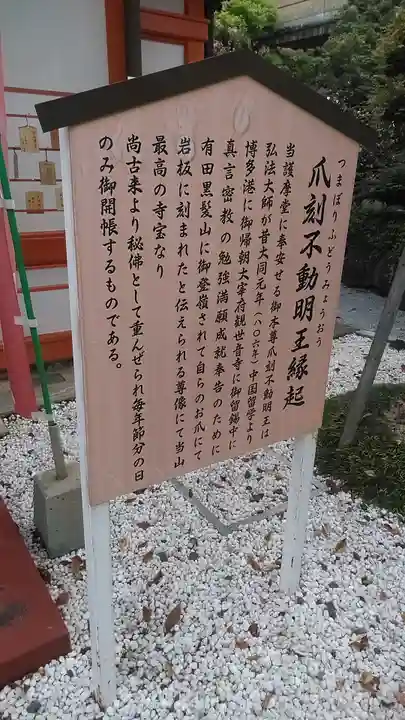 つまぼりふどうみょうおう
爪刻不動明王縁起
当護摩堂に奉安せる御本尊爪刻不動明王は
弘法大師が昔大同元年(八〇六年)中国留学より
博多港に御帰朝大宰府観世音寺に御留錫中に
真言密教の勉強満願成就奉告のために
有田黒髪山に御登嶺されて自らのお爪にて
岩板に刻まれたと伝えられる尊像にて当山
最高の寺宝なり
尚古来より秘佛として重んぜられ毎年節分の日
のみ御開帳するものである。